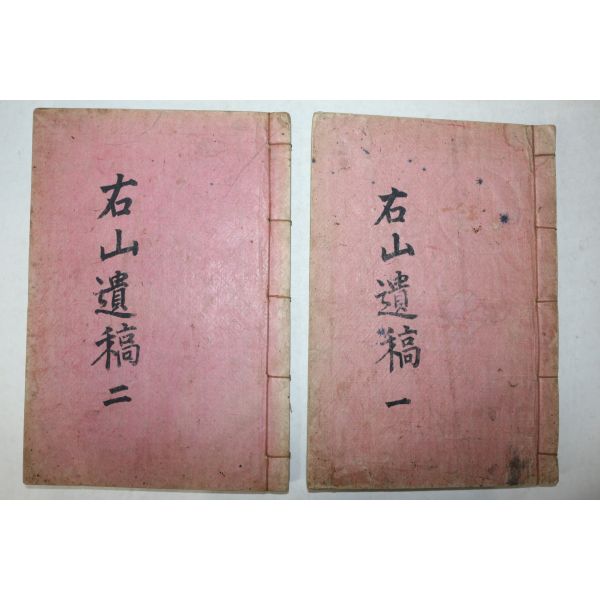 右山遺稿 一
右山遺稿 二